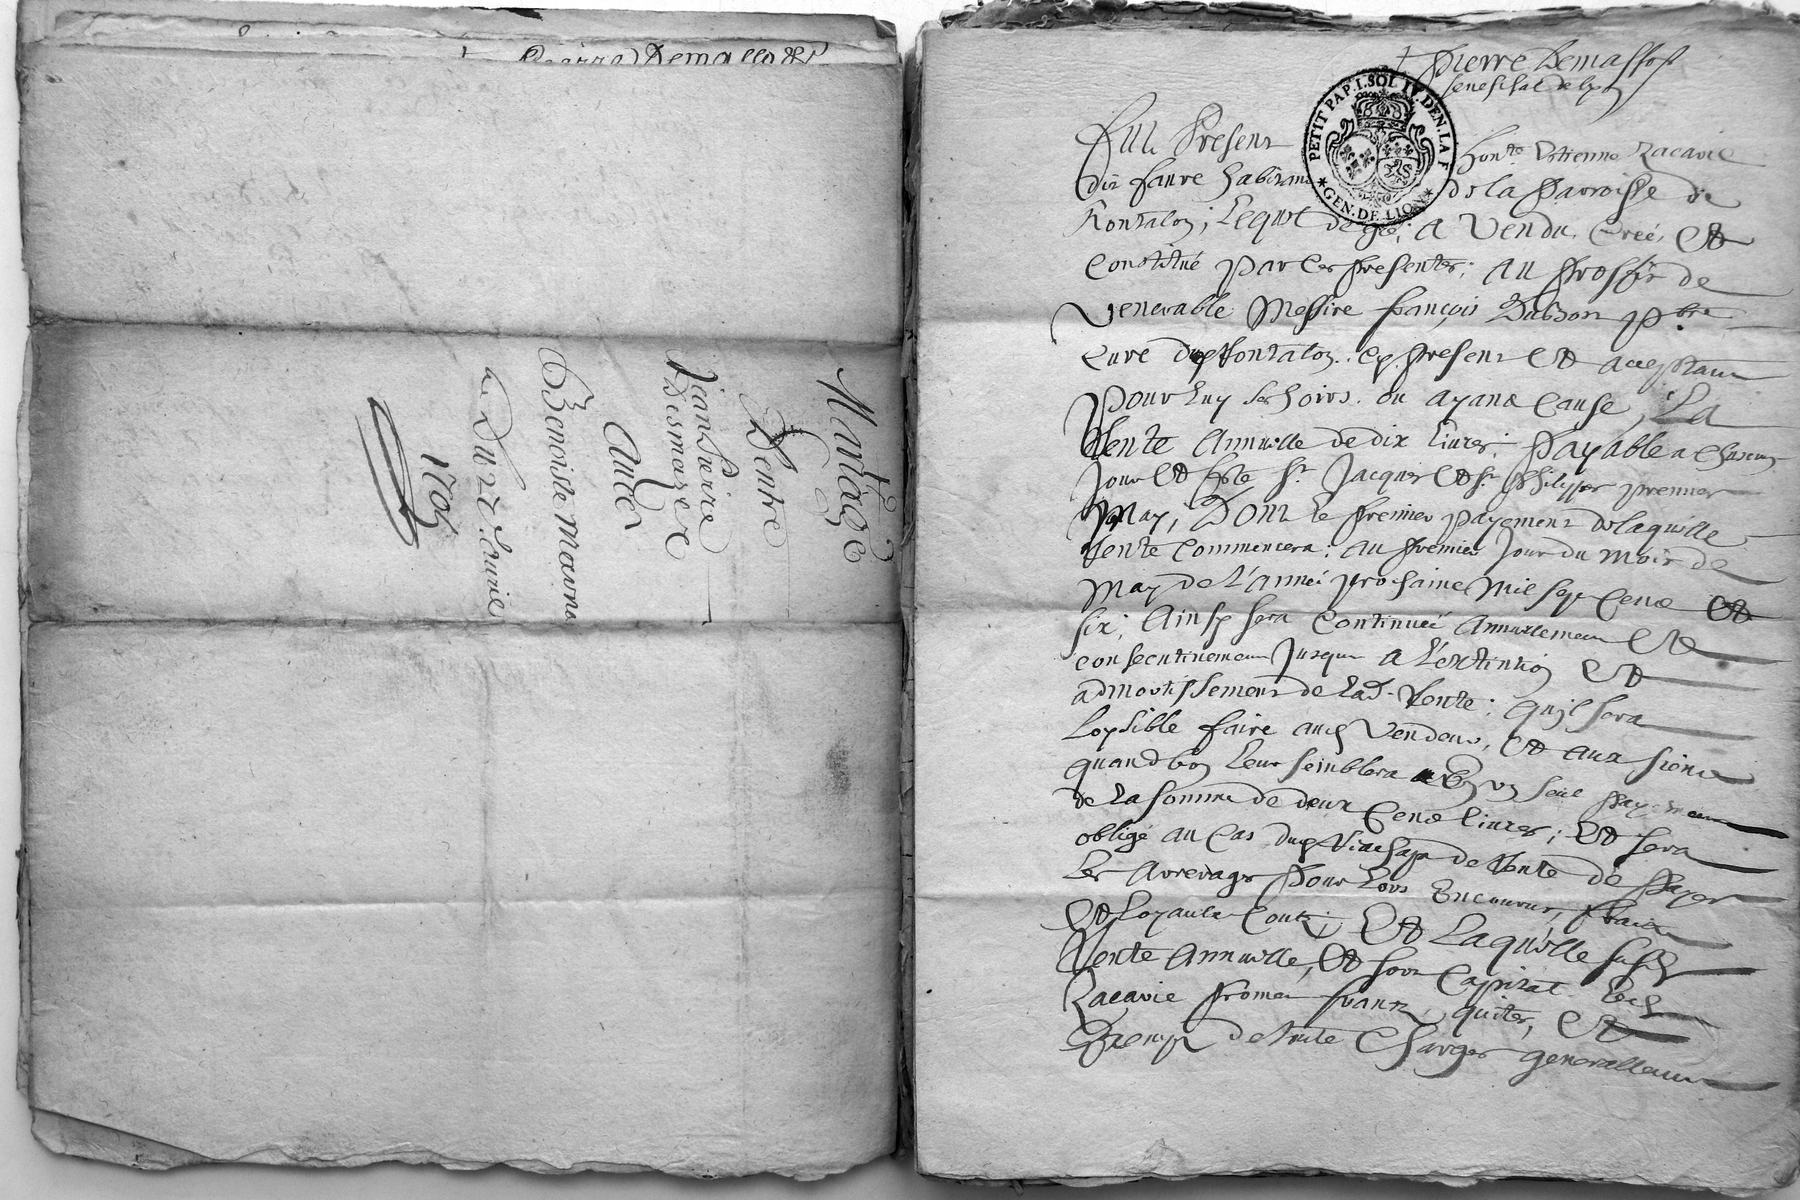 Pierre Demassost
Mariage
Dentre
Jean Pierre
Desmazere
Avec
Benoiste Marmo
du 27e Janvier
1705
Pierre Demassost
seneschal
PETIT PAP. I. SOL IV. DEN. LA F
GEN. DE LION
Fut Present honte Estienne Lacavie
dit faure habitant de la Parroisse de
Rontalon; Lequel de gré; A Vendu, Creé, Et
Constitué par Ces presentes; au proffit de
Venerable Messire françois Dubson pbre
Curé dud Rontalon. Cy present Et acceptant
pour luy ses hoirs. ou ayant Cause, La
Rente Annuelle de dix livres; payable a Chascun
Jour Et feste St. Jacques Et St. Philippes premier
May, Dont le premier payement de laquelle
Rente Commencera; au premier Jour du Mois de
May de L'année prochaine Mil sept Cent Et
six; Ainsy sera Continueé Annuelement Et
consecutivement Jusqu a L'extintion Et
admortissement de Lad. Rente; qu'il sera
Loysible faire aud Vendeur, Et aux siens
quand bon Leur semblera En un seul payement
de La somme de deux Cent livres; Et sera
obligé au Cas dud Rachapt de Rente de payer
Les Arrerages pour Lors Encourus, frais
Et Loyaulx Couts; Et Laquelle susd
Rente Annuelle, Et son Capital Led
Lacavie promet franz, quites, Et
Exempt de toute Charges generallement